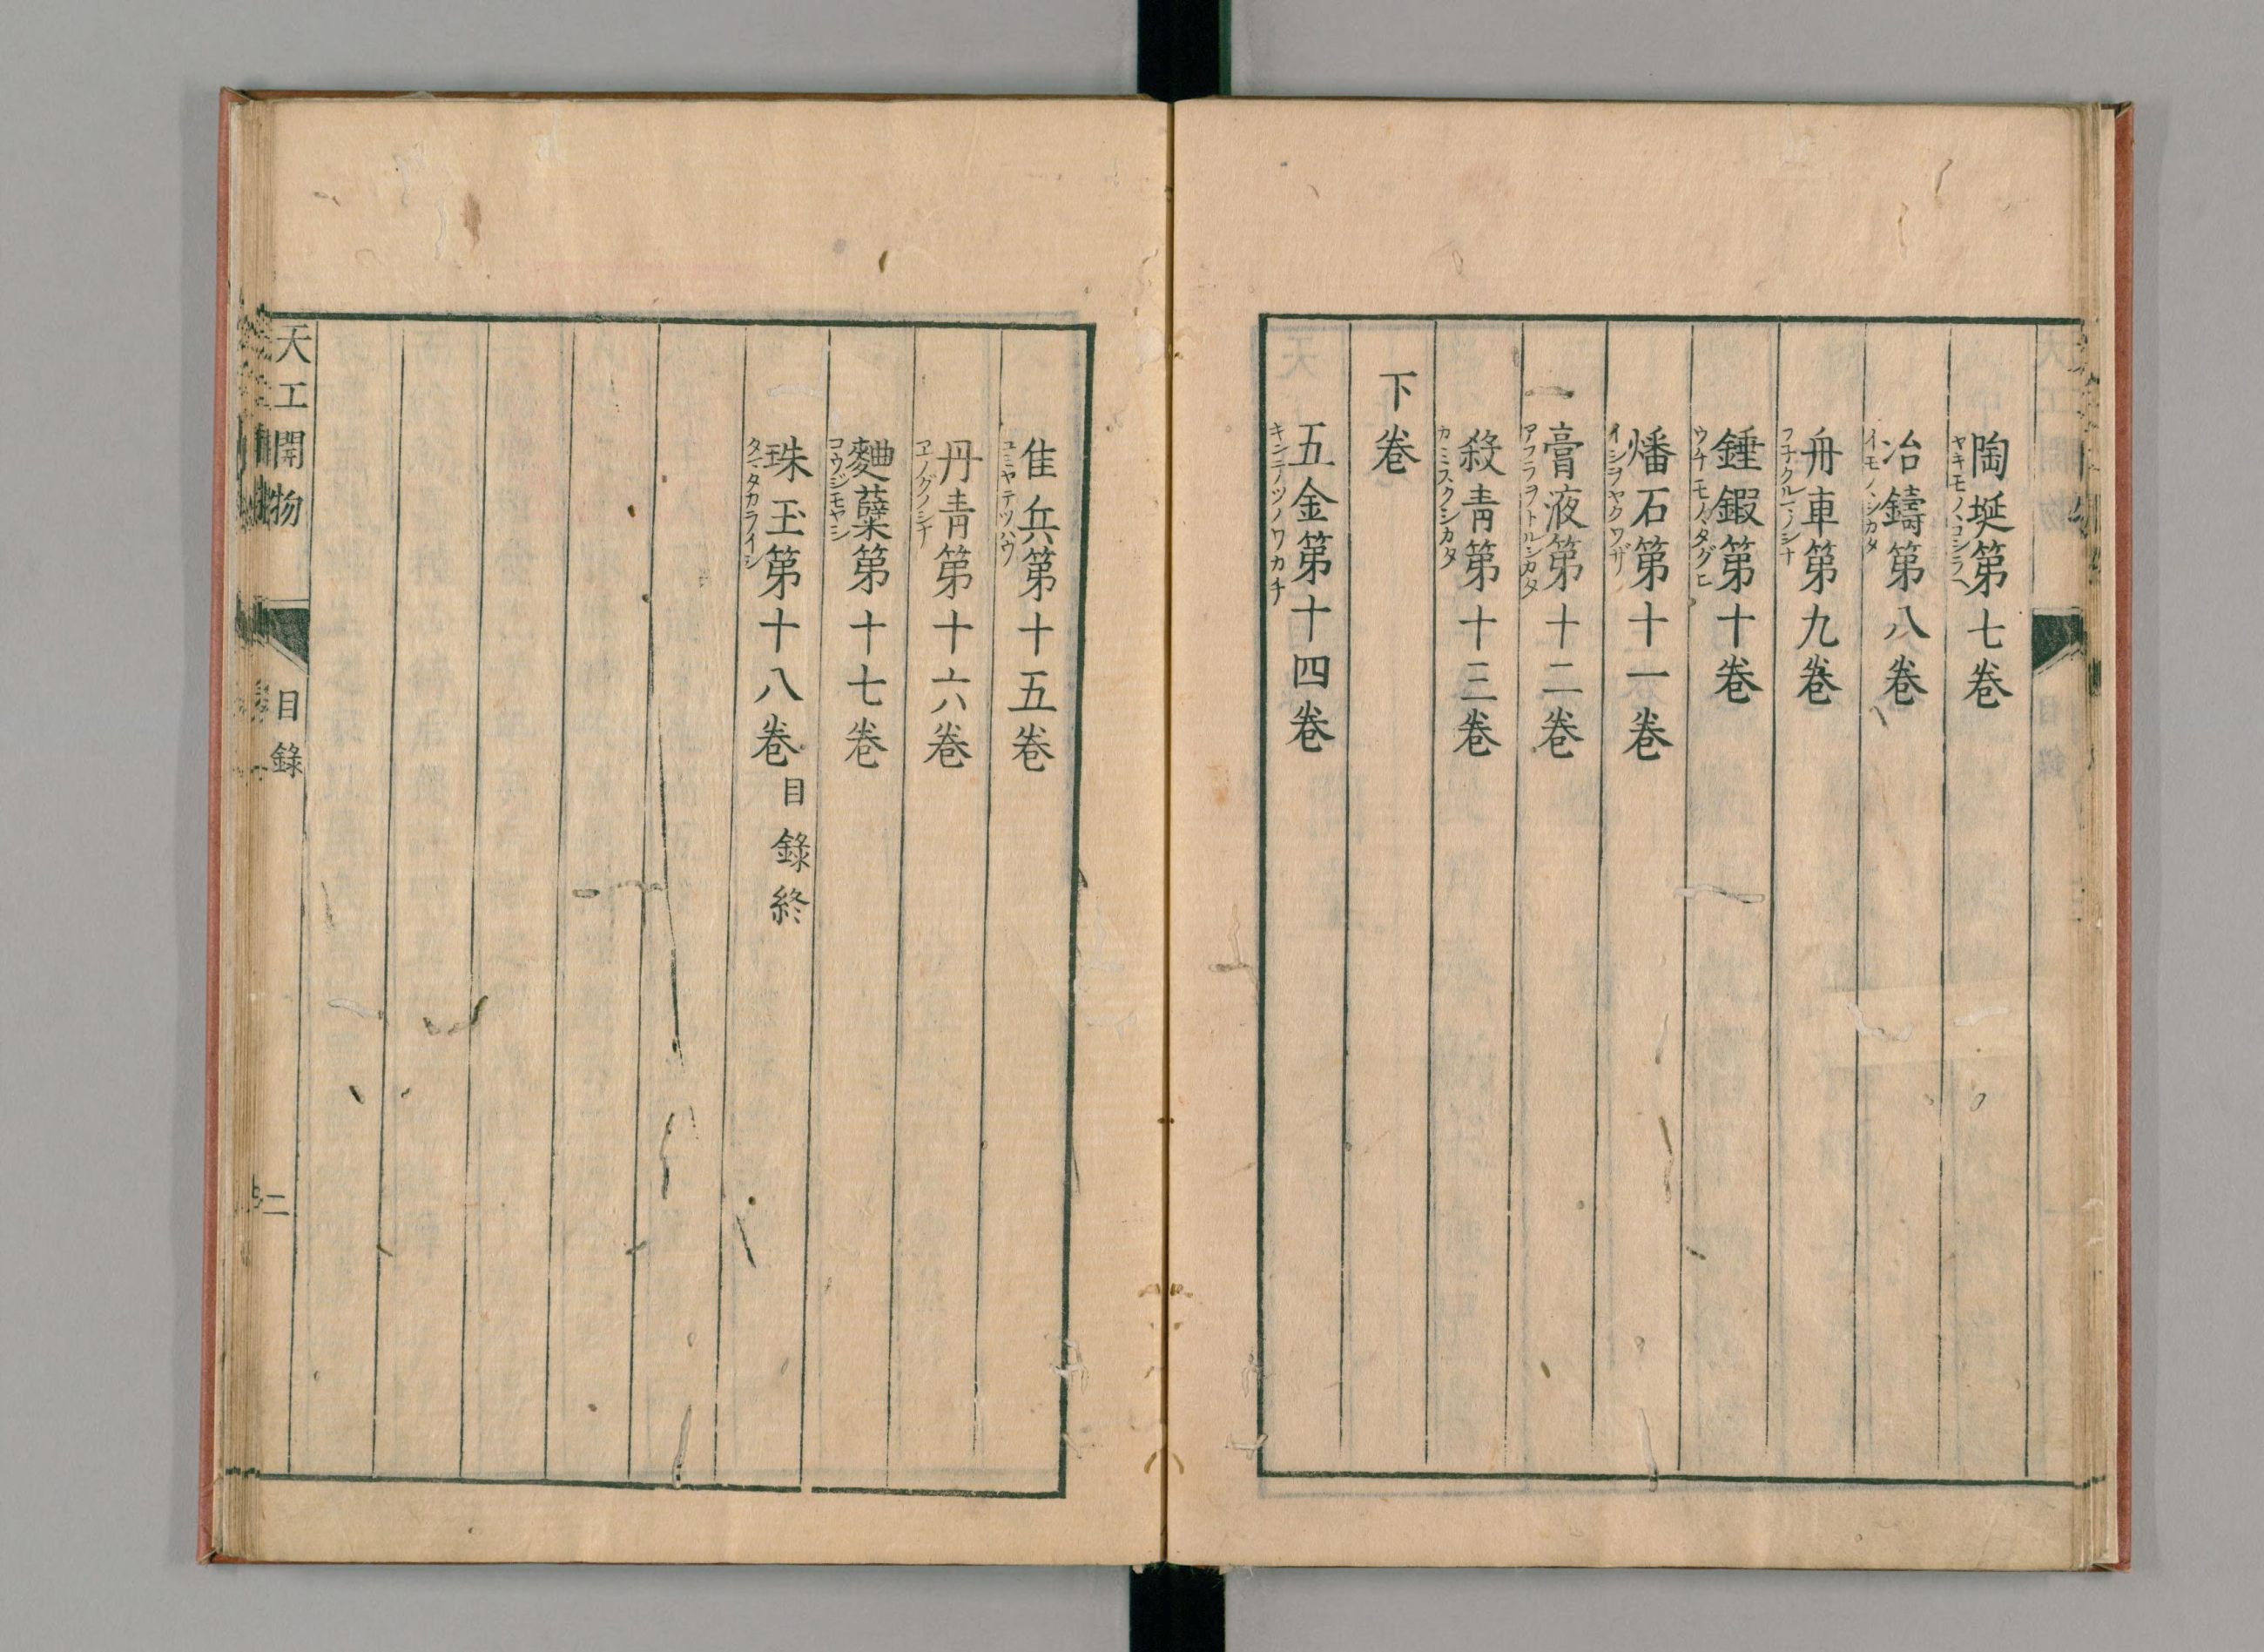 陶埏第七卷
ヤキモノヽコシラヘ
冶鑄第八卷
イモノヽシカタ
舟車第九卷
フチクルマノシナ
錘鍜第十卷
ウチモノヽタグヒ
燔石第十一卷
イシヲヤクワザ
膏液第十二卷
アフラヲトルシカタ
殺青第十三卷
カミスクシカタ
下卷
五金第十四卷
キンテツノワカチ
隹兵第十五卷
ユミヤテツハウ
丹青第十六卷
ヱノグノシナ
麯糵第十七卷
コウジモヤシ
珠玉第十八卷 目錄終
タマタカライシ
天工開物 目錄 二